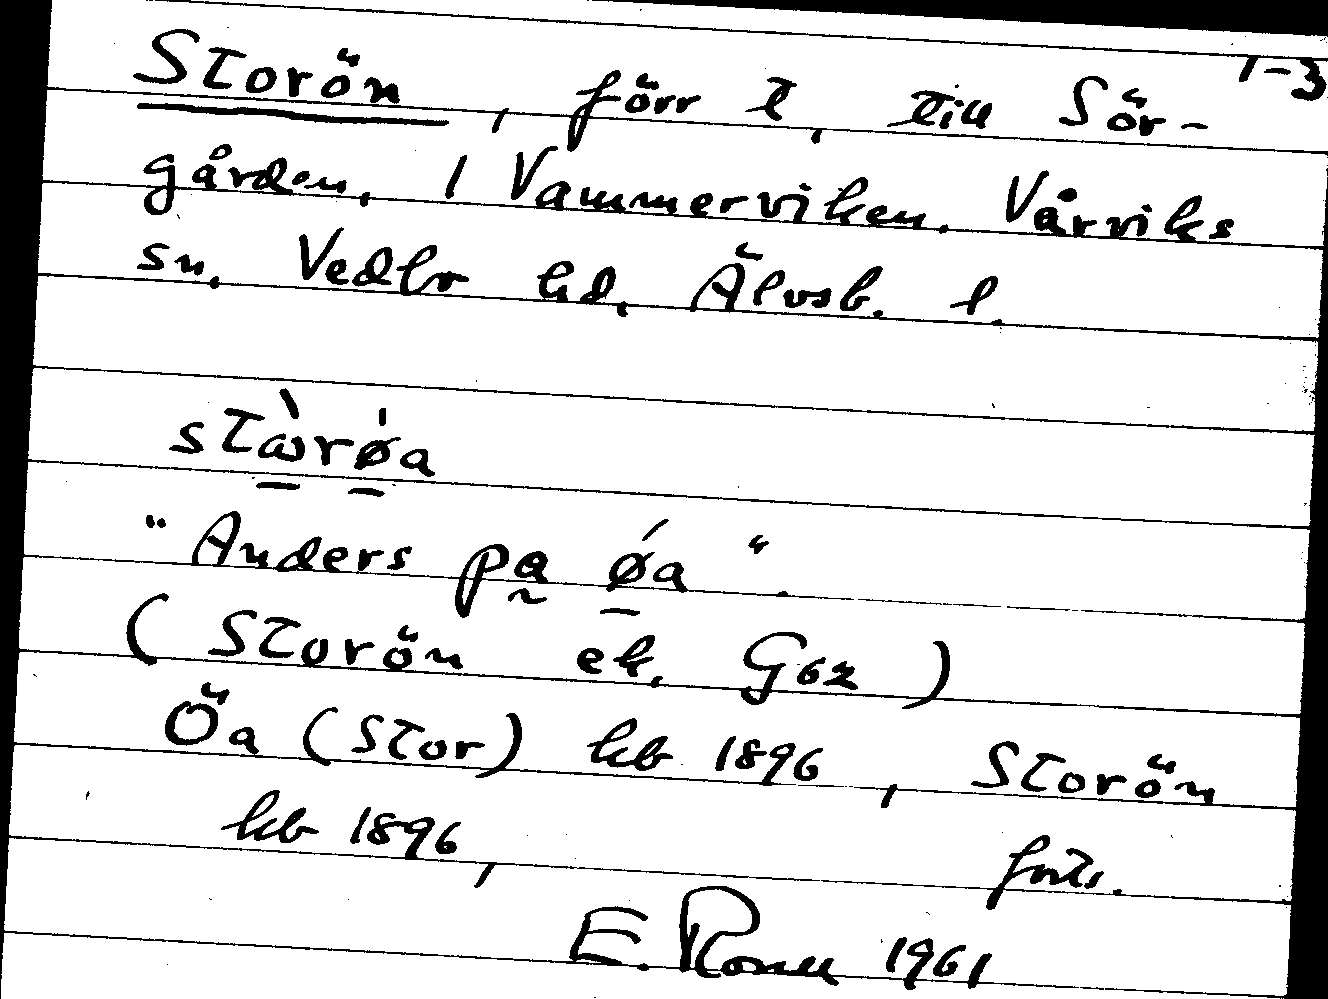 1-3
Storön, förr t. till Sör-
gården. I Vammerviken. Vårviks
sn. Vedbo hd. Älvsb. l.
stὼrǿa
"Anders pa̰ ǿa".
(Storön ek. G62)
Öa (Stor) kb 1896, Storön
kb 1896, forts.
E. 1961